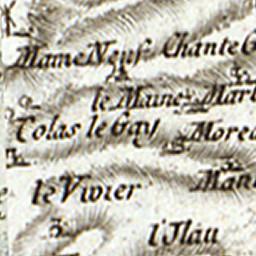 Mame Neuf Chante
le Maine Mart
Colas le Gay More
le Vivier Man
l'Ilau